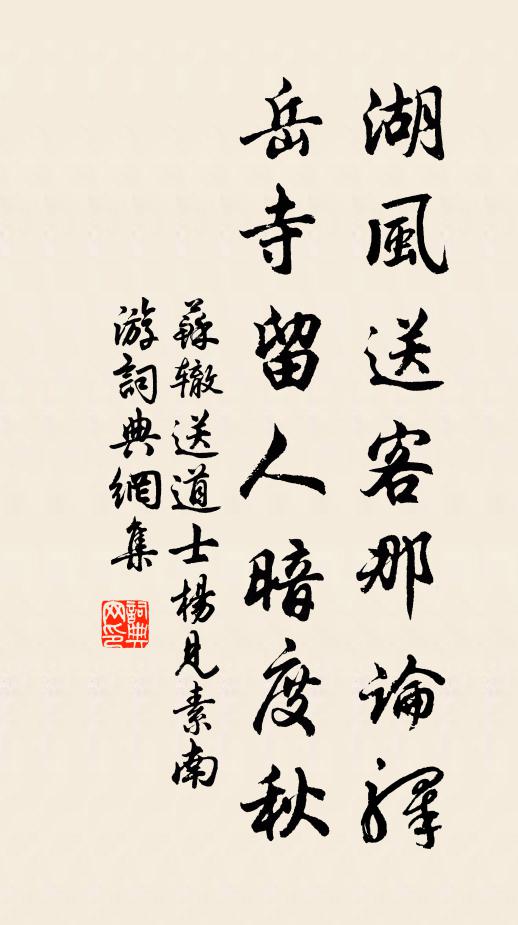 湖風送客那論驛
岳寺留人暗度秋
蘇轍送道士楊見素南
游詞典網集
詞典
网印